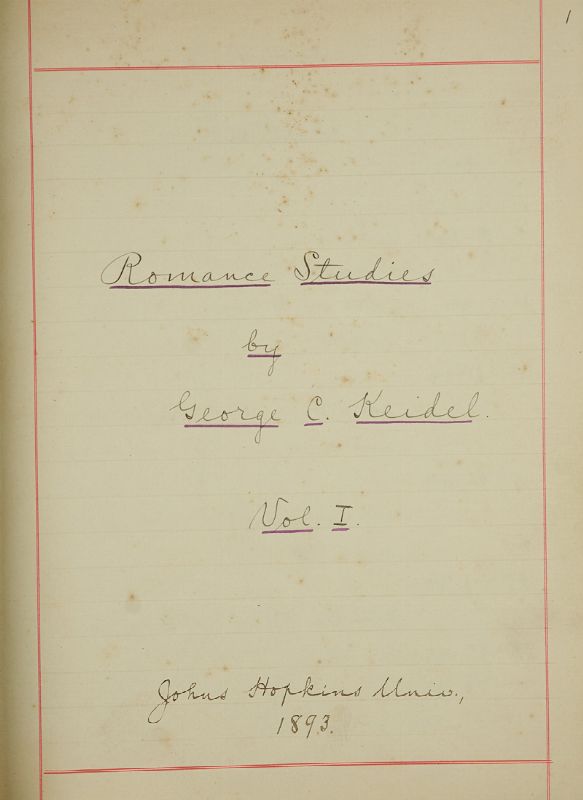 1
Romance Studies
by
George C. Keidel.
Vol. I.
Johns Hopkins Univ.,
1893.